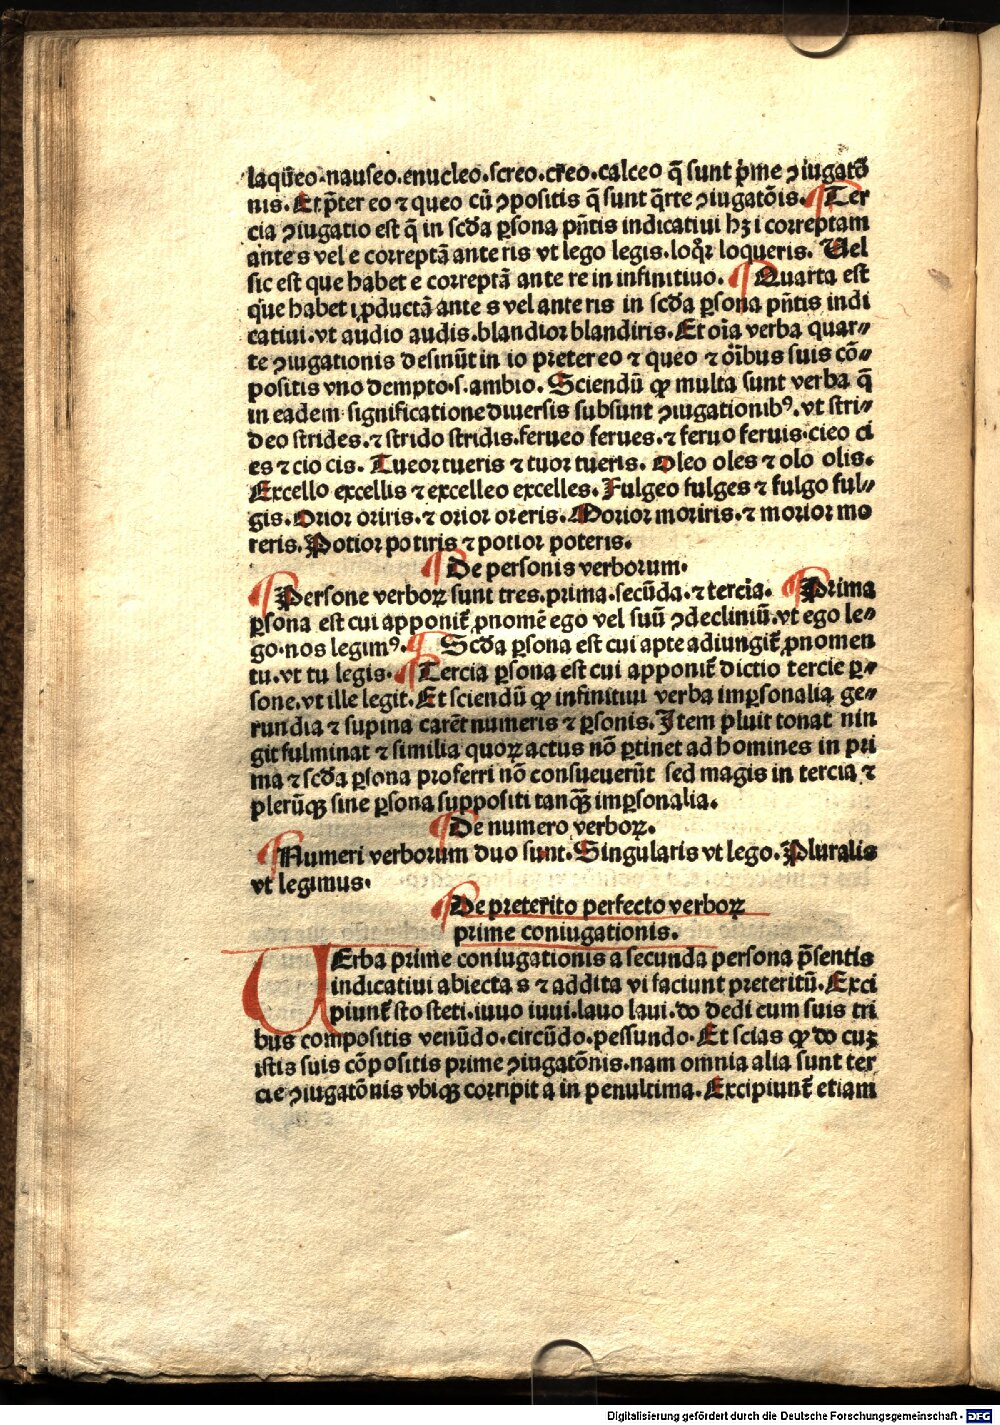 laq̄ueo.nauseo.enucleo.screo.cr̄eo.calceo q̄ sunt p̄me ꝯiugatō
nis. Et p̄ter eo ⁊ queo cū ꝯpositis q̄ sunt q̄rte ꝯiugatōis. Ter
cia ꝯiugatio est q̄ in scd̄a ꝑsona pn̄tis indicatiui hꝫ i correptam
ante s vel e correptā ante ris vt lego legis.loq̄r loqueris. Uel
sic est que habet e correptā ante re in infinitiuo. Quarta est
que habet i ꝓductā ante s vel ante ris in scd̄a ꝑsona pn̄tis indi
catiui.vt audio audis.blandior blandiris. Et oīa verba quar⸗
te ꝯiugationis desinūt in io preter eo ⁊ queo ⁊ oībus suis cō⸗
positis vno dempto.s.ambio. Sciendū ꝙ multa sunt verba q̄
in eadem significatione diuersis subsunt ꝯiugationibꝰ.vt stri⸗
deo strides.⁊ strido stridis.ferueo ferues.⁊ feruo feruis.cieo ci
es ⁊ cio cis. Tueor tueris ⁊ tuor tueris. Oleo oles ⁊ olo olis.
Excello excellis ⁊ excelleo excelles. Fulgeo fulges ⁊ fulgo ful⸗
gis. Orior oriris.⁊ orior oreris. Morior moriris.⁊ morior mo
reris. Potior potiris ⁊ potior poteris.
De personis verborum.
Persone verboꝝ sunt tres.prima.secūda.⁊ tercia. Prima
ꝑsona est cui apponit̄ ꝓnomē ego vel suū ꝯdecliniū.vt ego le⸗
go.nos legimꝰ. Scd̄a ꝑsona est cui apte adiungit̄ ꝓnomen
tu.vt tu legis. Tercia ꝑsona est cui apponit̄ dictio tercie ꝑ⸗
sone.vt ille legit. Et sciendū ꝙ infinitiui verba imꝑsonalia ge⸗
rundia ⁊ supina carēt numeris ⁊ ꝑsonis. Item pluit tonat nin
git fulminat ⁊ similia quoꝝ actus nō ꝑtinet ad homines in pri
ma ⁊ scd̄a ꝑsona proferri nō consueuerūt sed magis in tercia ⁊
plerūqꝫ sine ꝑsona suppositi tanqꝫ̄ imꝑsonalia.
De numero verboꝝ.
Numeri verborum duo sunt. Singularis vt lego. Pluralis
vt legimus.
De preterito perfecto verboꝝ
prime coniugationis.
UErba prime coniugationis a secunda persona p̄sentis
indicatiui abiecta s ⁊ addita vi faciunt preteritū. Exci
piunt̄ sto steti.iuuo iuui.lauo laui.do dedi cum suis tri
bus compositis venūdo.circūdo.pessundo. Et scias ꝙ do cuꝫ
istis suis cōpositis prime ꝯiugatōnis.nam omnia alia sunt ter
cie ꝯiugatōnis vbiqꝫ corripit a in penultima. Excipiunt̄ etiam
Digitalisierung gefördert durch die Deutsche Forschungsgemeinschaft - DFG